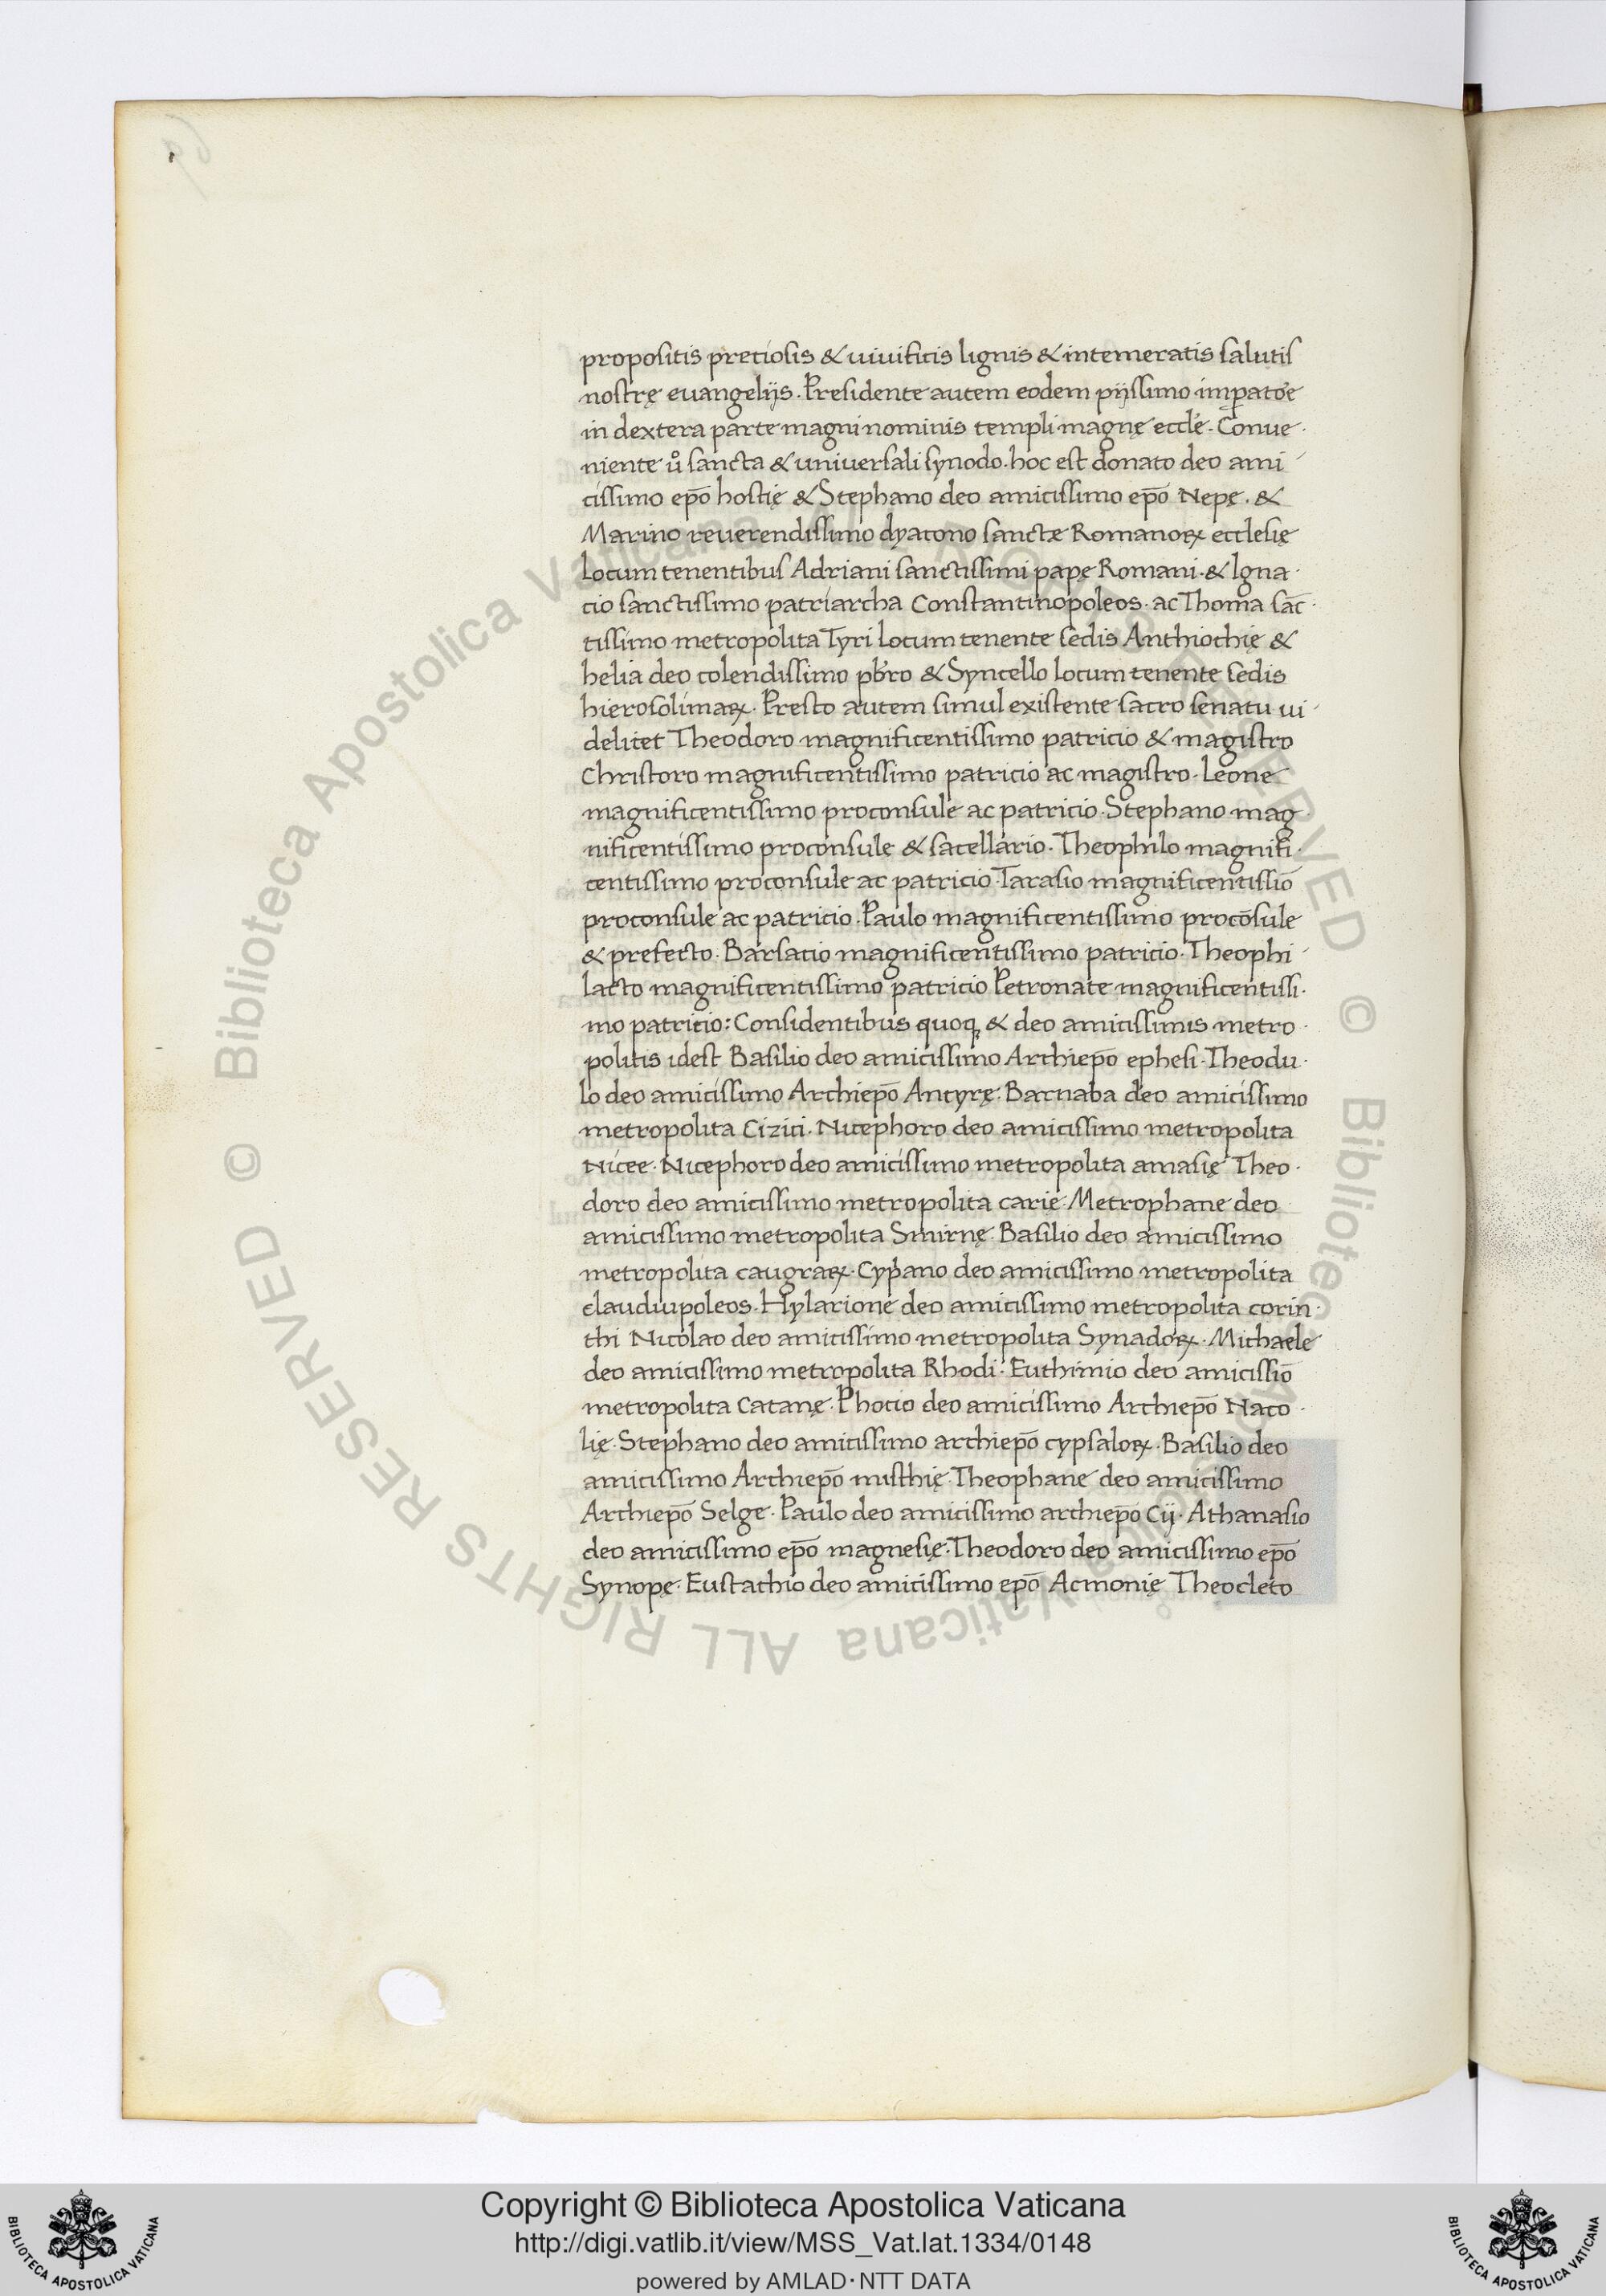 propositis preciosis & uiuificis lignis & intemeratis salutis
nostrę euangelijs. Presidente autem eodem pijssimo imp̱atoe
in dextera parte magni nominis templi magnę eccle. Conue
niente uº sancta & uniuersali synodo. hoc est donato deo ami
cissimo ep̄o hostię & Stephano deo amicissimo ep̄o Nepę. &
Marino reuerendissimo dyacono sanctæ Romanoꝝ ecclesię
Locum tenentibus Adriani sanctissimi papę Romani. & Igna
cio sanctissimo patriarcha Constantinopoleos. ac Thoma sāc
tissimo metropolita Tyri Locum tenente sedis Anthiochię &
helia deo colendissimo pb̄ro & Syncello locum tenente sedis
hierosolimaꝝ. Presto autem simul existente sacro senatu ui
delicet Theodoro magnificentissimo patricio & magistro
Christoro magnificentissimo patricio ac magistro. Leone
magnificentissimo proconsule ac patricio. Stephano mag
nificentissimo proconsule & sacellario. Theophilo magnifi
centissimo proconsule ac patricio. Tarasio magnificentissīo
proconsule ac patricio. Paulo magnificentissimo procōsule
& prefecto. Barsacio magnificentissimo patricio. Theophi
lacto magnificentissimo patricio Petronate magnificentissi
mo patricio: Considentibus quoqꝫ & deo amicissimis metro
politis idest Basilio deo amicissimo Archiep̄o ephesi. Theodu
lo deo amicissimo Archiep̄o Ancyrę. Barnaba deo amicissimo
metropolita Cizici. Nicephoro deo amicissimo metropolita
Nicee. Nicephoro deo amicissimo metropolita amasię Theo
doro deo amicissimo metropolita carię. Metrophane deo
amicissimo metropolita Smirnę. Basilio deo amicissimo
metropolita caugraꝝ. Cyp̱ano deo amicissimo metropolita
claudiupoleos. Hylarione deo amicissimo metropolita corin
thi Nicolao deo amicissimo metropolita Synadoꝝ. Michaele
deo amicissimo metropolita Rhodi. Euthimio deo amicissīo
metropolita Catanę. Phocio deo amicissimo Archiep̄o Naco
lię. Stephano deo amicissimo archiep̄o cypsaloꝝ. Basilio deo
amicissimo Archiep̄o misthię. Theophane deo amicissimo
Archiep̄o Selge. Paulo deo amicissimo archiep̄o Cij. Athanasio
deo amicissimo ep̄o magnesię. Theodoro deo amicissimo ep̄o
Synopę. Eustathio deo amicissimo ep̄o Acmonię Theocleto
© Biblioteca Apostolica Vaticana ALL RIGHTS RESERVED
© Biblioteca Apostolica Vaticana ALL RIGHTS RESERVED
Copyright © Biblioteca Apostolica Vaticana
http://digi.vatlib.it/view/MSS_Vat.lat.1334/0148
powered by AMLAD·NTT DATA
BIBLIOTECA APOSTOLICA VATICANA
BIBLIOTECA APOSTOLICA VATICANA